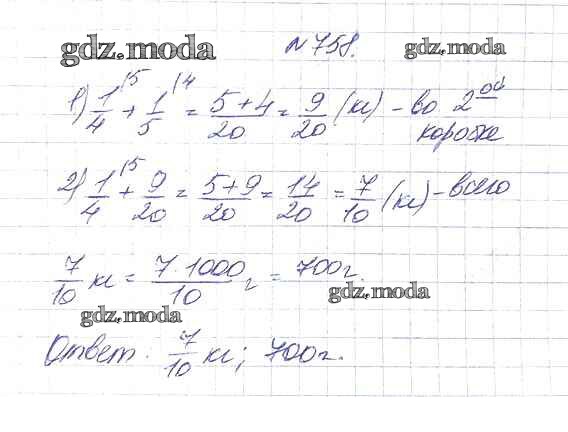 gdz.moda № 758. gdz.moda
1) 1/4 /5 + 1/5 /4 = (5+4)/20 = 9/20 (кг) - во 2ой
коробке
2) 1/4 /5 + 9/20 = (5+9)/20 = 14/20 = 7/10 (кг) - всего
7/10 кг = (7·1000)/10 г = 700 г.
gdz.moda
gdz.moda
Ответ: 7/10 кг; 700 г.